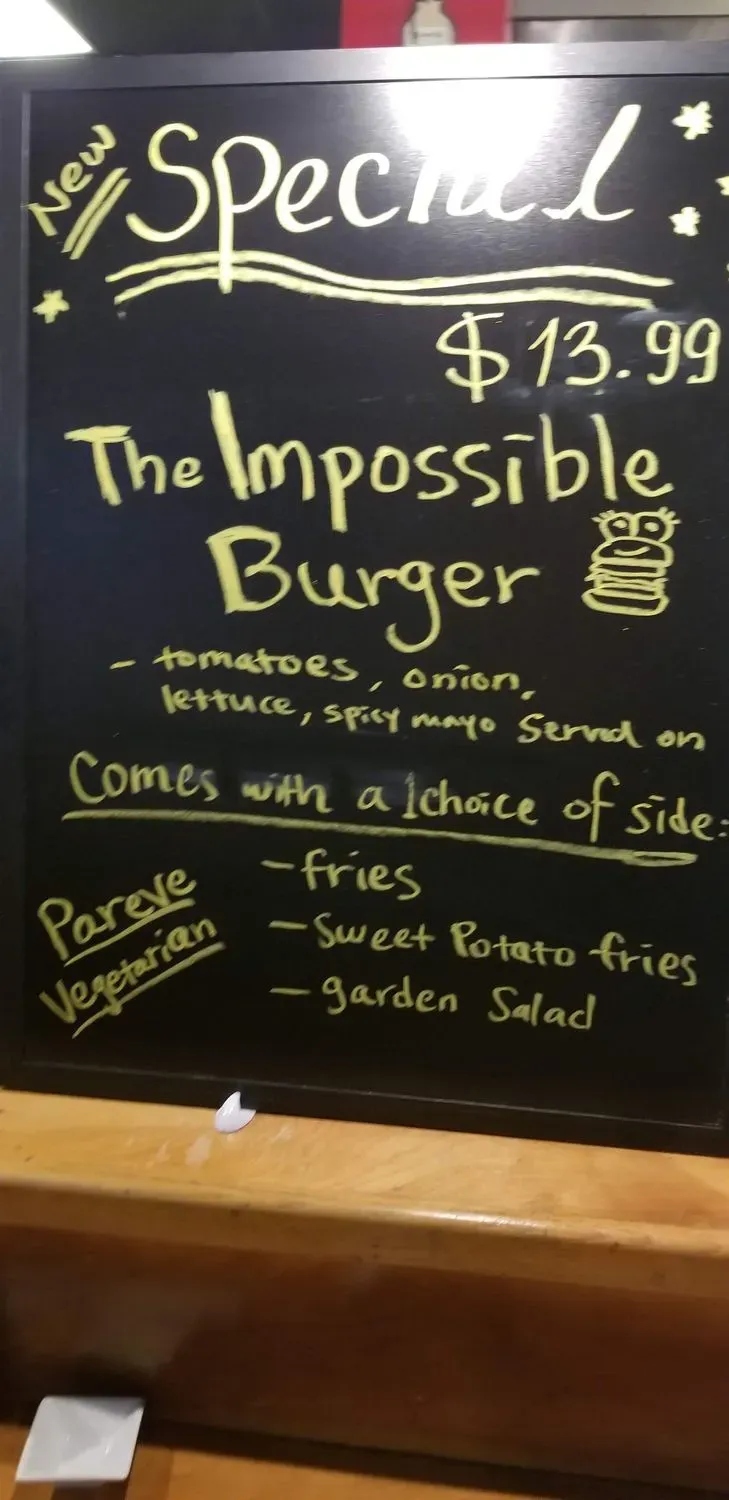 New Special
$13.99
The Impossible
Burger
- tomatoes, onion,
lettuce, spicy mayo Served on
Comes with a 1 choice of side:
- fries
- Sweet Potato fries
- garden Salad
Pareve
Vegetarian